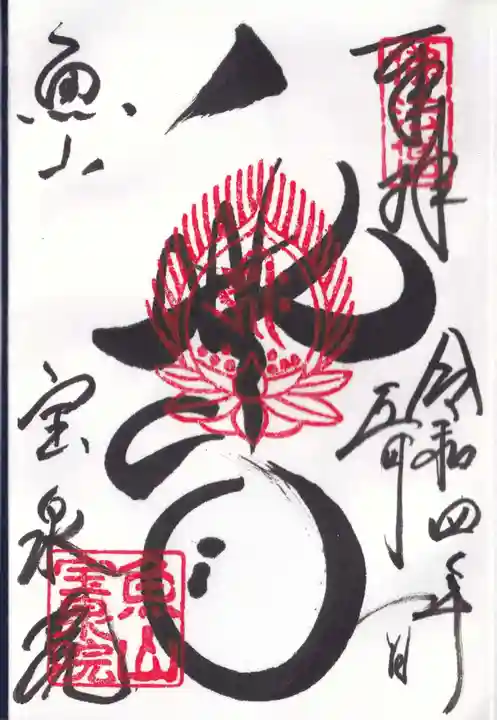 奉拝
令和四年
五月一日
魚山
宝泉院
魚山
宝泉院